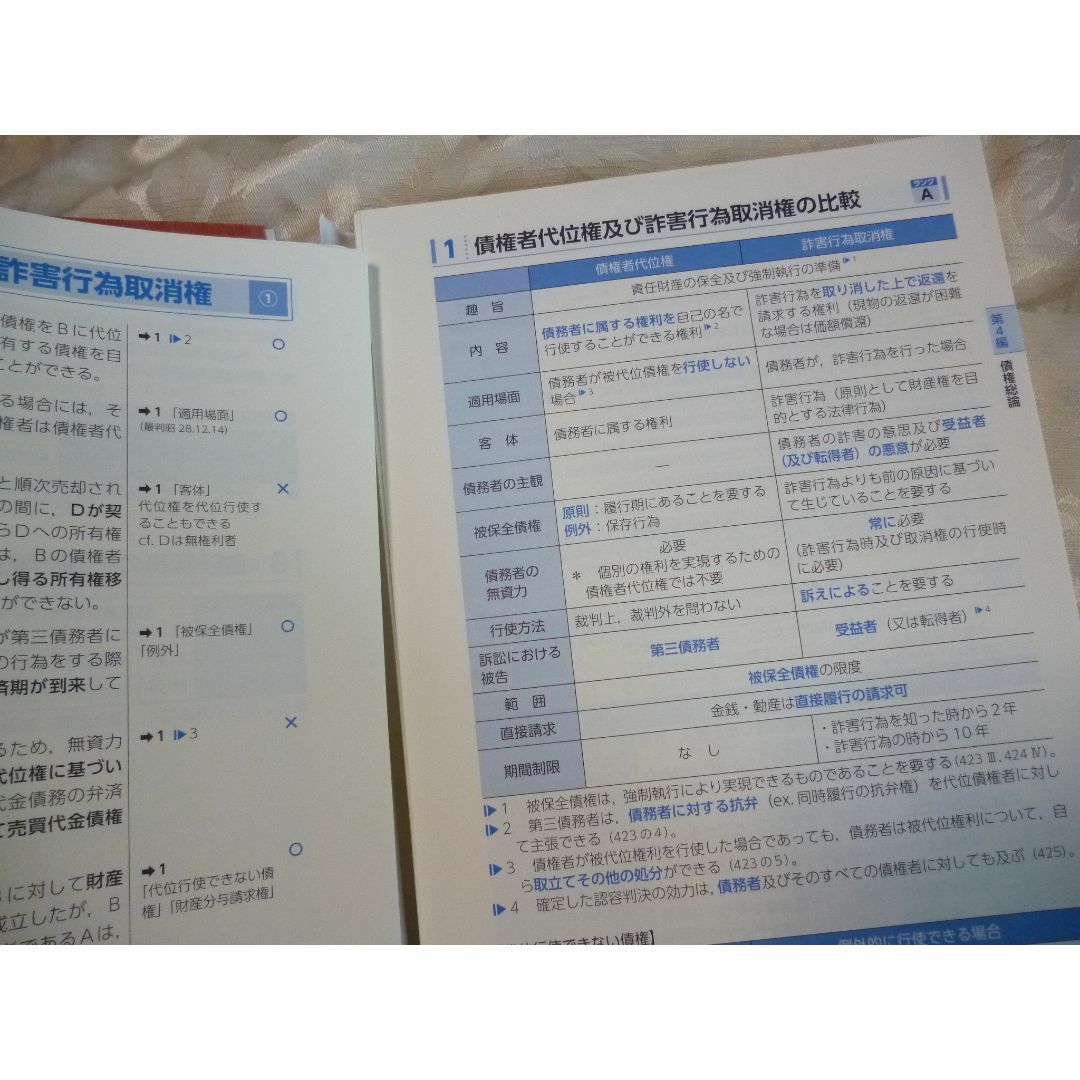 詐害行為取消権 ①
債権をBに代位
有する債権を自
ことができる。
る場合には，そ
権者は債権者代
と順次売却され
の間に，Dが契
らDへの所有権
は，Bの債権者
し得る所有権移
ができない。
が第三債務者に
の行為をする際
済期が到来して
るため，無資力
代位権に基づい
代金債務の弁済
て売買代金債権
に対して財産
成立したが，B
であるAは，
➡1 ▶2 ○
➡1「適用場面」 ○
(最判昭 28.12.14)
➡1「客体」 ×
代位権を代位行使す
ることもできる
cf. Dは無権利者
➡1「被保全債権」 ○
「例外」
➡1 ▶3 ×
➡1 ○
「代位行使できない債
権」「財産分与請求権」
1 債権者代位権及び詐害行為取消権の比較 ランク A
債権者代位権 詐害行為取消権
趣旨 責任財産の保全及び強制執行の準備▶1
内容
債務者に属する権利を自己の名で
行使することができる権利▶2
詐害行為を取り消した上で返還を
請求する権利（現物の返還が困難
な場合は価額償還）
適用場面
債務者が被代位債権を行使しない
場合▶3
債務者が，詐害行為を行った場合
客体
債務者に属する権利
詐害行為（原則として財産権を目
的とする法律行為）
債務者の主観
―
債務者の詐害の意思及び受益者
（及び転得者）の悪意が必要
被保全債権
原則：履行期にあることを要する
例外：保存行為
詐害行為よりも前の原因に基づい
て生じていることを要する
債務者の
無資力
必要
＊ 個別の権利を実現するための
債権者代位権では不要
常に必要
（詐害行為時及び取消権の行使時
に必要）
行使方法 裁判上，裁判外を問わない 訴えによることを要する
訴訟における
被告
第三債務者 受益者（又は転得者）▶4
範囲 被保全債権の限度
直接請求 金銭・動産は直接履行の請求可
期間制限
なし
・詐害行為を知った時から2年
・詐害行為の時から10年
▶1 被保全債権は，強制執行により実現できるものであることを要する（423 Ⅲ，424 Ⅳ）。
▶2 第三債務者は，債務者に対する抗弁（ex. 同時履行の抗弁権）を代位債権者に対し
て主張できる（423の4）。
▶3 債権者が被代位権利を行使した場合であっても，債務者は被代位権利について，自
ら取立てその他の処分ができる（423の5）。
▶4 確定した認容判決の効力は，債務者及びそのすべての債権者に対しても及ぶ（425）。
行使できない債権】
例外的に行使できる場合
第4編
債権総論